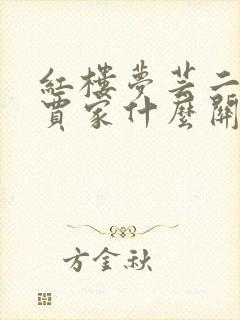 紅樓夢芸二
賈家什麼關
方金秋